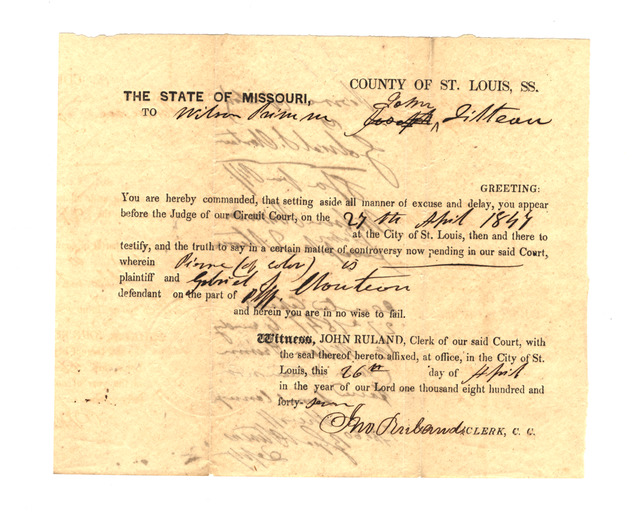 COUNTY OF ST. LOUIS, SS.
THE STATE OF MISSOURI,
John
TO Wilson Primm Joseph ^ Tilteau
GREETING:
You are hereby commanded, that setting aside all manner of excuse and delay, you appear
before the Judge of our Circuit Court, on the 27th April 1847
at the City of St. Louis, then and there to
testify, and the truth to say in a certain matter of controversy now pending in our said Court,
wherein Pierre (of color) is
plaintiff and Gabriel S. Chouteau
defendant on the part of Plff.
and herein you are in no wise to fail.
Witness, JOHN RULAND, Clerk of our said Court, with
the seal thereof hereto affixed, at office, in the City of St.
Louis, this 26th day of April
in the year of our Lord one thousand eight hundred and
forty-seven
Jno. Ruland CLERK, C. C.